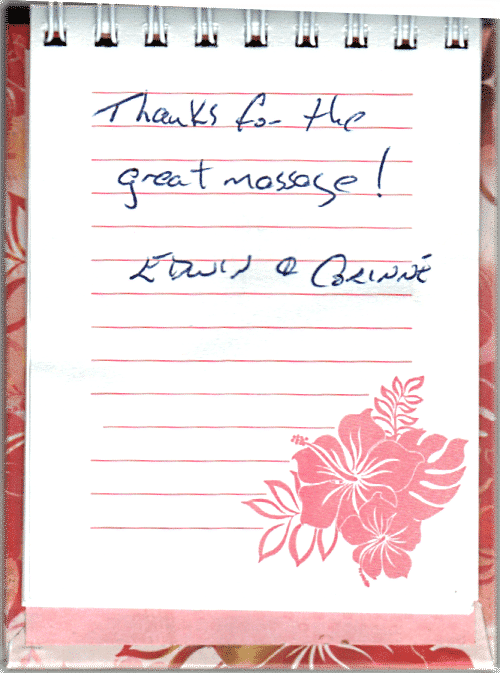 Thanks for the
great massage!
Edwin & Corinne